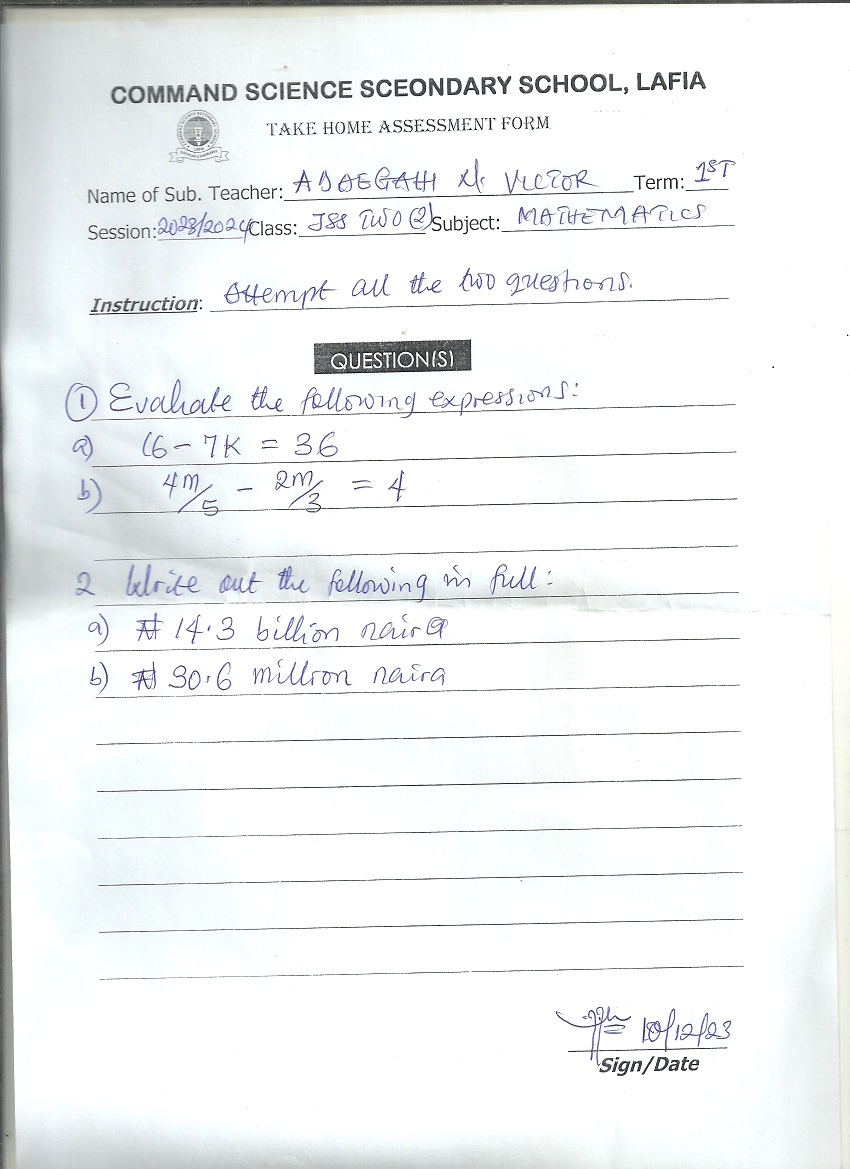 COMMAND SCIENCE SCEONDARY SCHOOL, LAFIA
TAKE HOME ASSESSMENT FORM
Name of Sub. Teacher: VICTOR Term: 1ST
Session: 2023/2024 Class: JSS TWO (2) Subject: MATHEMATICS
Instruction: Attempt all the two questions.
QUESTION(S)
① Evaluate the following expressions:
a) 16 - 7K = 36
b) 4m/5 - 2m/3 = 4
2 Write out the following in full:
a) ₦ 14.3 billion naira
b) ₦ 30.6 million naira
10/12/23
Sign/Date